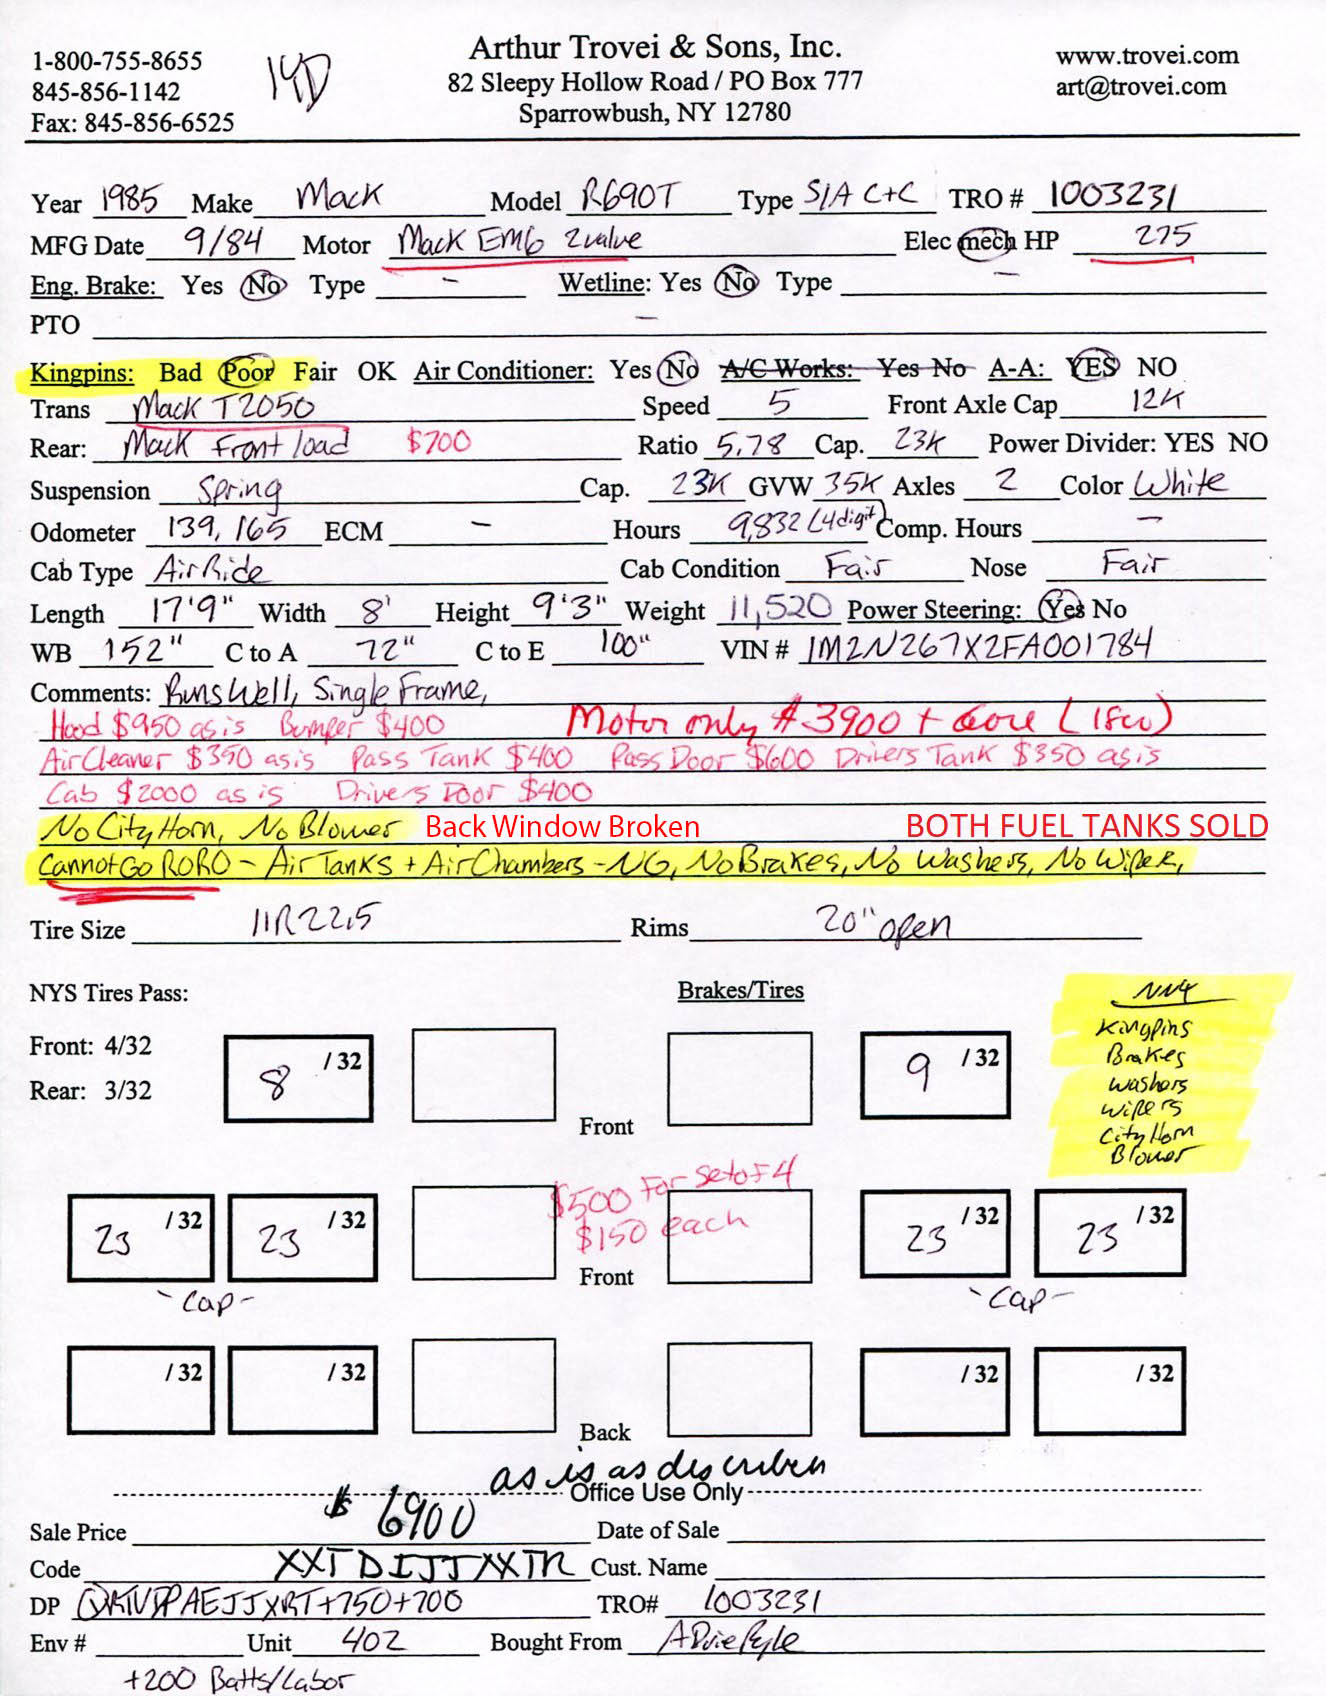 1-800-755-8655
845-856-1142
Fax: 845-856-6525
14D
Arthur Trovei & Sons, Inc.
82 Sleepy Hollow Road / PO Box 777
Sparrowbush, NY 12780
www.trovei.com
art@trovei.com
Year 1985 Make Mack Model R690T Type S/A C+C TRO # 1003231
MFG Date 9/84 Motor Mack EM6 2valve Elec mech HP 275
Eng. Brake: Yes No Type - Wetline: Yes No Type -
PTO -
Kingpins: Bad Poor Fair OK Air Conditioner: Yes No A/C Works: Yes No A-A: YES NO
Trans Mack T2050 Speed 5 Front Axle Cap 12K
Rear: Mack Front load $700 Ratio 5.78 Cap. 23K Power Divider: YES NO
Suspension Spring Cap. 23K GVW 35K Axles 2 Color White
Odometer 139,165 ECM - Hours 9,832 (4digit) Comp. Hours -
Cab Type Air Ride Cab Condition Fair Nose Fair
Length 17'9" Width 8' Height 9'3" Weight 11,520 Power Steering: Yes No
WB 152" C to A 72" C to E 100" VIN # 1M2N267X2FA001784
Comments: Runs Well, Single Frame,
Hood $950 as is Bumper $400 Motor only $3900 + Core (1800)
Air Cleaner $350 as is Pass Tank $400 Pass Door $600 Drivers Tank $350 as is
Cab $2000 as is Drivers Door $400
No City Horn, No Blower Back Window Broken BOTH FUEL TANKS SOLD
Cannot Go RORO - Air Tanks + Air Chambers - NG, No Brakes, No Washers, No Wiper,
Tire Size 11R22.5 Rims 20" open
NYS Tires Pass: Brakes/Tires
Front: 4/32
Rear: 3/32
8 /32
9 /32
Front
Kingpins
Brakes
Washers
Wipers
City Horn
Blower
$500 For Set of 4
$150 each
23 /32 23 /32 23 /32 23 /32
Front
-Cap- -Cap-
/32 /32 /32 /32
Back
as is as described
Office Use Only
Sale Price $6900 Date of Sale
Code XXTDIJJXXTR Cust. Name
DP +750+700 TRO# 1003231
Env # Unit 402 Bought From
+200 Batts/Labor